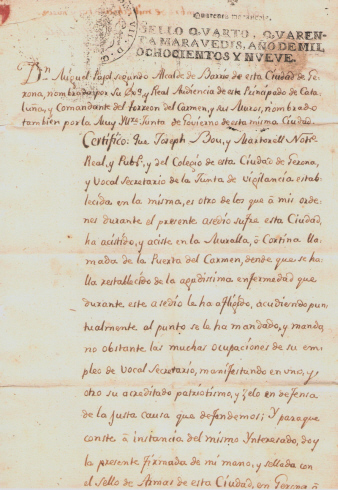 Quarenta maravedis.
SELLO QVARTO, QVAREN-
TA MARAVEDIS, AÑO DE MIL
OCHOCIENTOS Y NVEVE.
Dn. Miguel Pajol segundo Alcalde de Barrio de esta Ciudad de Ge-
rona, nombrado por su Exa. y Real Audiencia de este Principado de Cata-
luña, y Comandante del Torreon del Carmen, y sus Muros, nombrado
tambien por la Muy Iltre. Junta de Govierno de esta misma Ciudad.
Certifico: Que Joseph Bou, y Martorell Noto.
Real, y Pubco. y del Colegio de esta Ciudad de Gerona,
y Vocal Secretario de la Junta de vigilancia estab-
lecida en la misma, es otro de los que â mis orde-
nes durante el presente asedio sufre esta Ciudad,
ha acistido, y aciste en la Muralla, ô Cortina lla-
mada de la Puerta del Carmen, desde que se ha-
lla restallecido de la agudissima enfermedad que
durante este asedio le ha afligido, acudiendo pun-
tualmente al punto se le ha mandado, y manda,
no obstante las muchas ocupaciones de su em-
pleo de Vocal Secretario, manifestando en uno, y
otro su acreditado patriotismo, y zelo en defensa
de la Justa causa que defendemos; Y para que
conste â instancia del mismo Ynteresado, doy
la presente firmada de mi mano, y sellada con
el Sello de Armas de esta Ciudad, en Gerona â